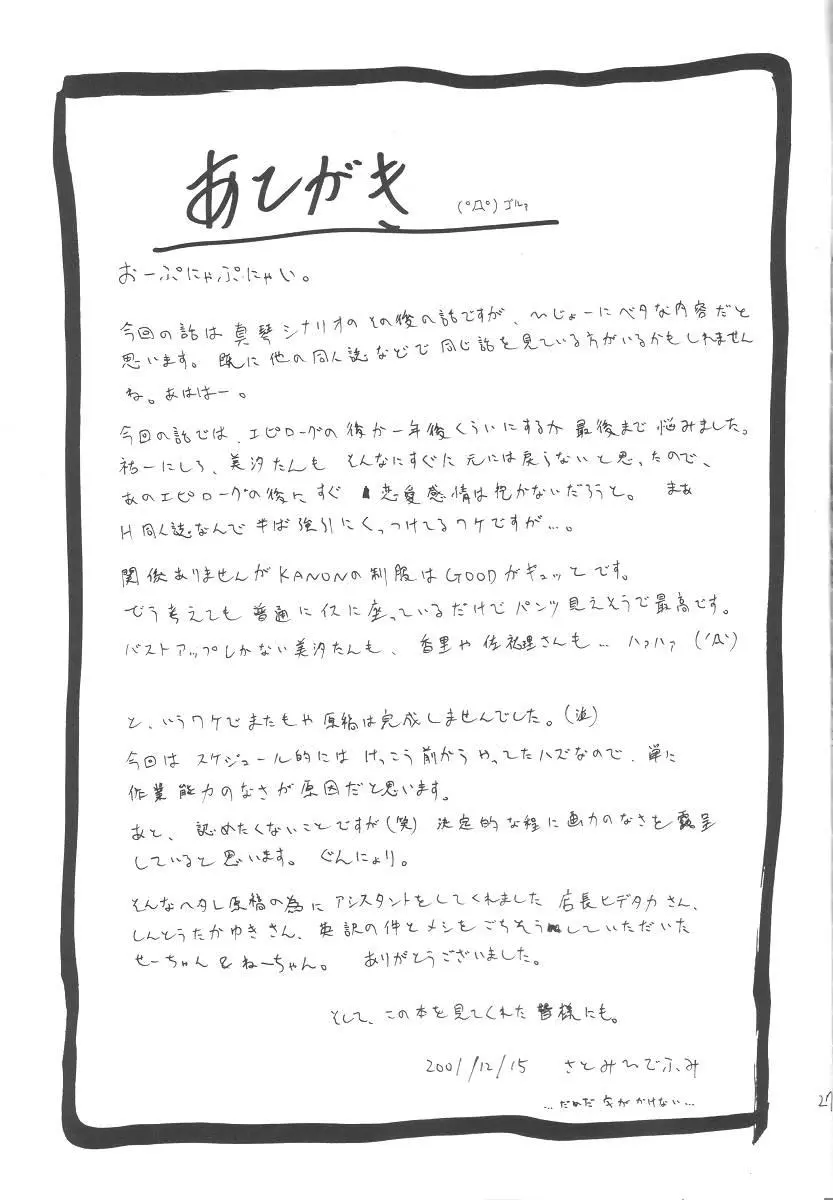 あとがき (゚Д゚)ゴルァ
おーぷにゃぷにゃい。
今回の話は真琴シナリオのその後の話ですが、ひじょーにベタな内容だと
思います。既に他の同人誌などで同じ話を見ている方がいるかもしれません
ね。あははー。
今回の話では、エピローグの後か一年後くらいにするか最後まで悩みました。
祐一にしろ、美汐たんもそんなにすぐに元には戻らないと思ったので、
あのエピローグの後にすぐ恋愛感情は抱かないだろうと。まぁ
H同人誌なんで半ば強引にくっつけてるワケですが…。
関係ありませんがKANONの制服はGOODがギュッとです。
どう考えても普通にイスに座っているだけでパンツ見えそうで最高です。
バストアップしかない美汐たんも、香里や佐祐理さんも…ハァハァ(´Д`)
と、いうワケでまたもや原稿は完成しませんでした。(泣)
今回はスケジュール的にはけっこう前からやってたハズなので、単に
作業能力のなさが原因だと思います。
あと、認めたくないことですが(笑)決定的な程に画力のなさを露呈
していると思います。ぐんにょり。
そんなヘタレ原稿の為にアシスタントをしてくれました店長ヒデタカさん、
しんとうたかゆきさん、英訳の件とメシをごちそうしていただいた
せーちゃん&ねーちゃん。ありがとうございました。
そして、この本を見てくれた皆様にも。
2001/12/15 さとみひでふみ
…だめだ字がかけない…
27